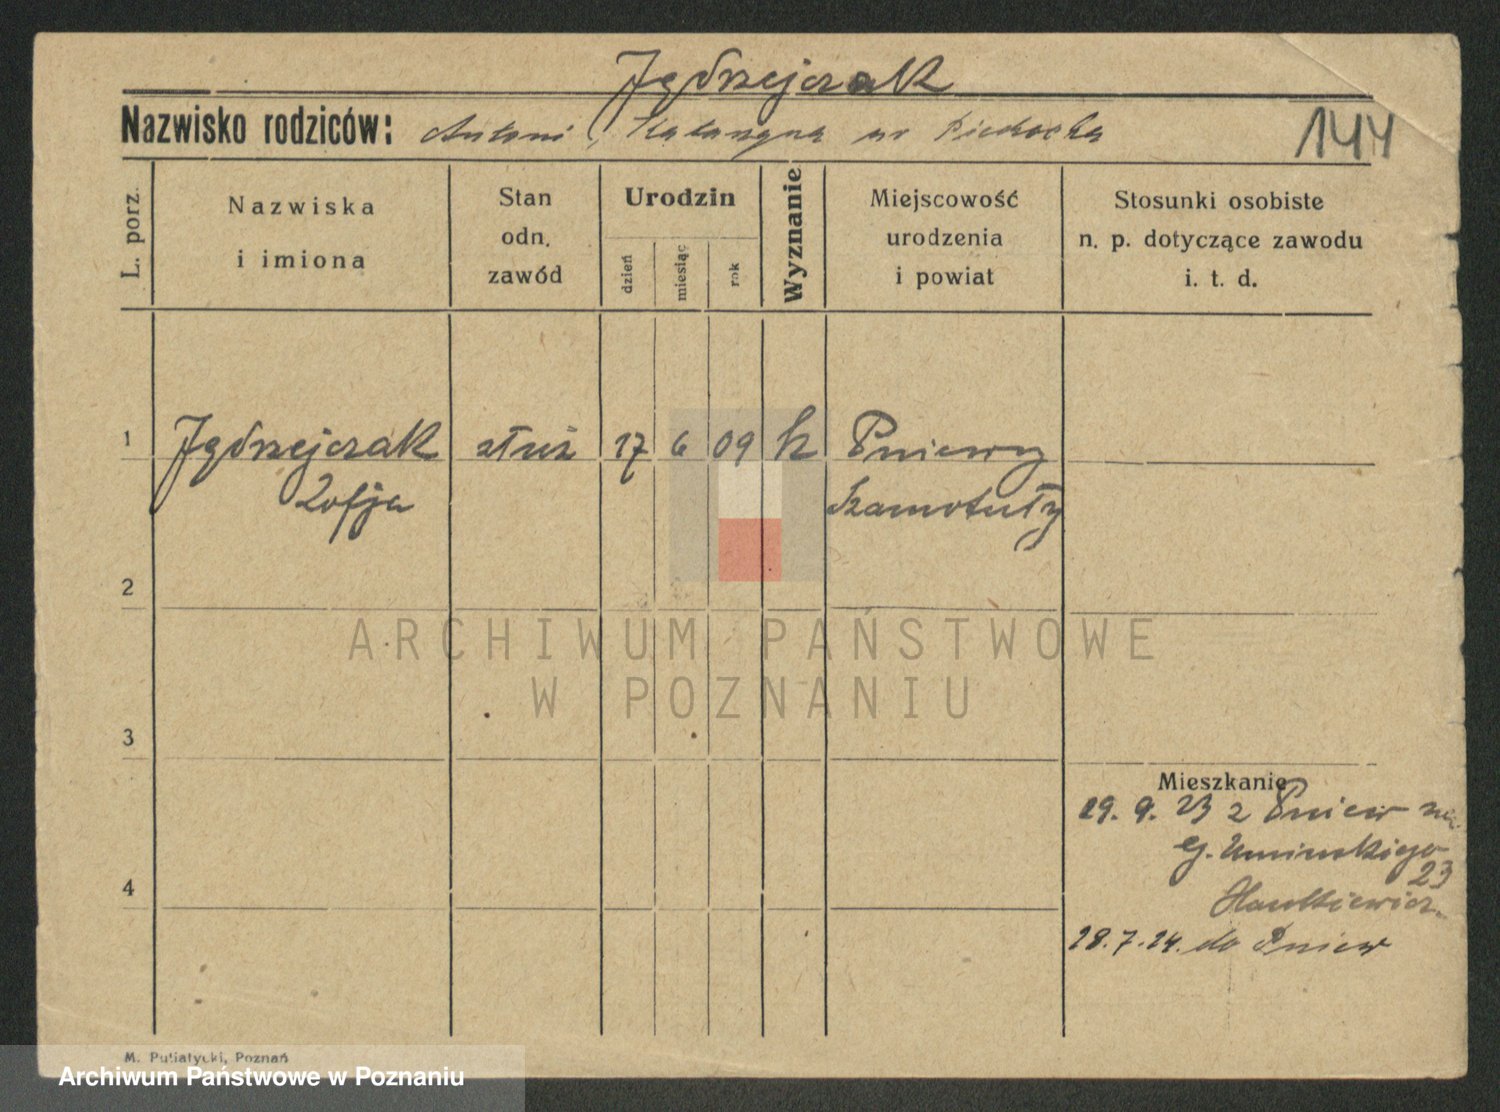 Jędrzejczak
Nazwisko rodziców: Antoni, Katarzyna ur
144
L. porz.
Nazwiska
i imiona
Stan
odn.
zawód
Urodzin
dzień
miesiąc
rok
Wyznanie
Miejscowość
urodzenia
i powiat
Stosunki osobiste
n. p. dotyczące zawodu
i. t. d.
1 Jędrzejczak służ 17 6 09 k Pniewy
Zofja Szamotuły
2
ARCHIWUM PAŃSTWOWE
W POZNANIU
3
Mieszkanie
29. 9. 23 z Pniew na
G. Umińskiego
23
4
28. 7. 24. do Pniew
M. Putiatycki, Poznań
Archiwum Państwowe w Poznaniu